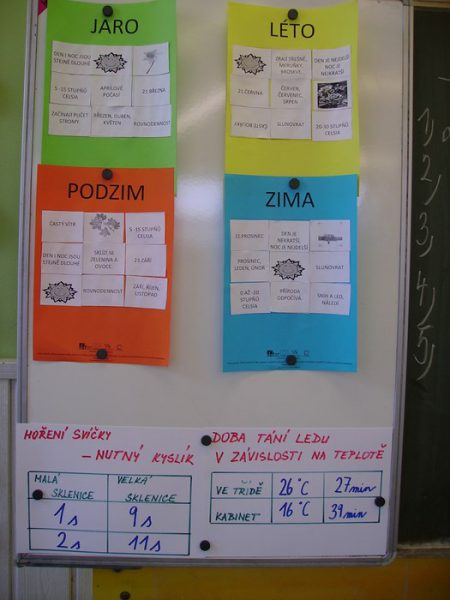 JARO
DEN I NOC JSOU
STEJNĚ DLOUHÉ
5 -15 STUPŇŮ
CELSIA
APRÍLOVÉ
POČASÍ
21.BŘEZNA
ZAČÍNAJÍ PUČET
STROMY
BŘEZEN, DUBEN,
KVĚTEN
ROVNODENNOST
LÉTO
ZRAJÍ TŘEŠNĚ,
MERUŇKY,
BROSKVE
DEN JE NEJDELŠÍ
NOC JE
NEJKRATŠÍ
21.ČERVNA
ČERVEN,
ČERVENEC,
SRPEN
ČASTÉ BOUŘKY
SLUNOVRAT
20-30 STUPŇŮ
CELSIA
PODZIM
ČASTÝ VÍTR
5 -15 STUPŇŮ
CELSIA
DEN I NOC JSOU
STEJNĚ DLOUHÉ
SKLÍZÍ SE
ZELENINA A
OVOCE
23.ZÁŘÍ
ROVNODENNOST
ZÁŘÍ, ŘÍJEN,
LISTOPAD
ZIMA
DEN JE
NEJKRATŠÍ,
NOC JE NEJDELŠÍ
PROSINEC,
LEDEN, ÚNOR
SLUNOVRAT
0 AŽ -20
STUPŇŮ
CELSIA
PŘÍRODA
ODPOČÍVÁ
SNÍH A LED,
NÁLEDÍ
HOŘENÍ SVÍČKY
- NUTNÝ KYSLÍK
MALÁ
SKLENICE
VELKÁ
SKLENICE
1s
9s
2s
11s
DOBA TÁNÍ LEDU
V ZÁVISLOSTI NA TEPLOTĚ
VE TŘÍDĚ
26°C
27min
KABINET
16°C
39min
1)
2)
3)
4)
5)